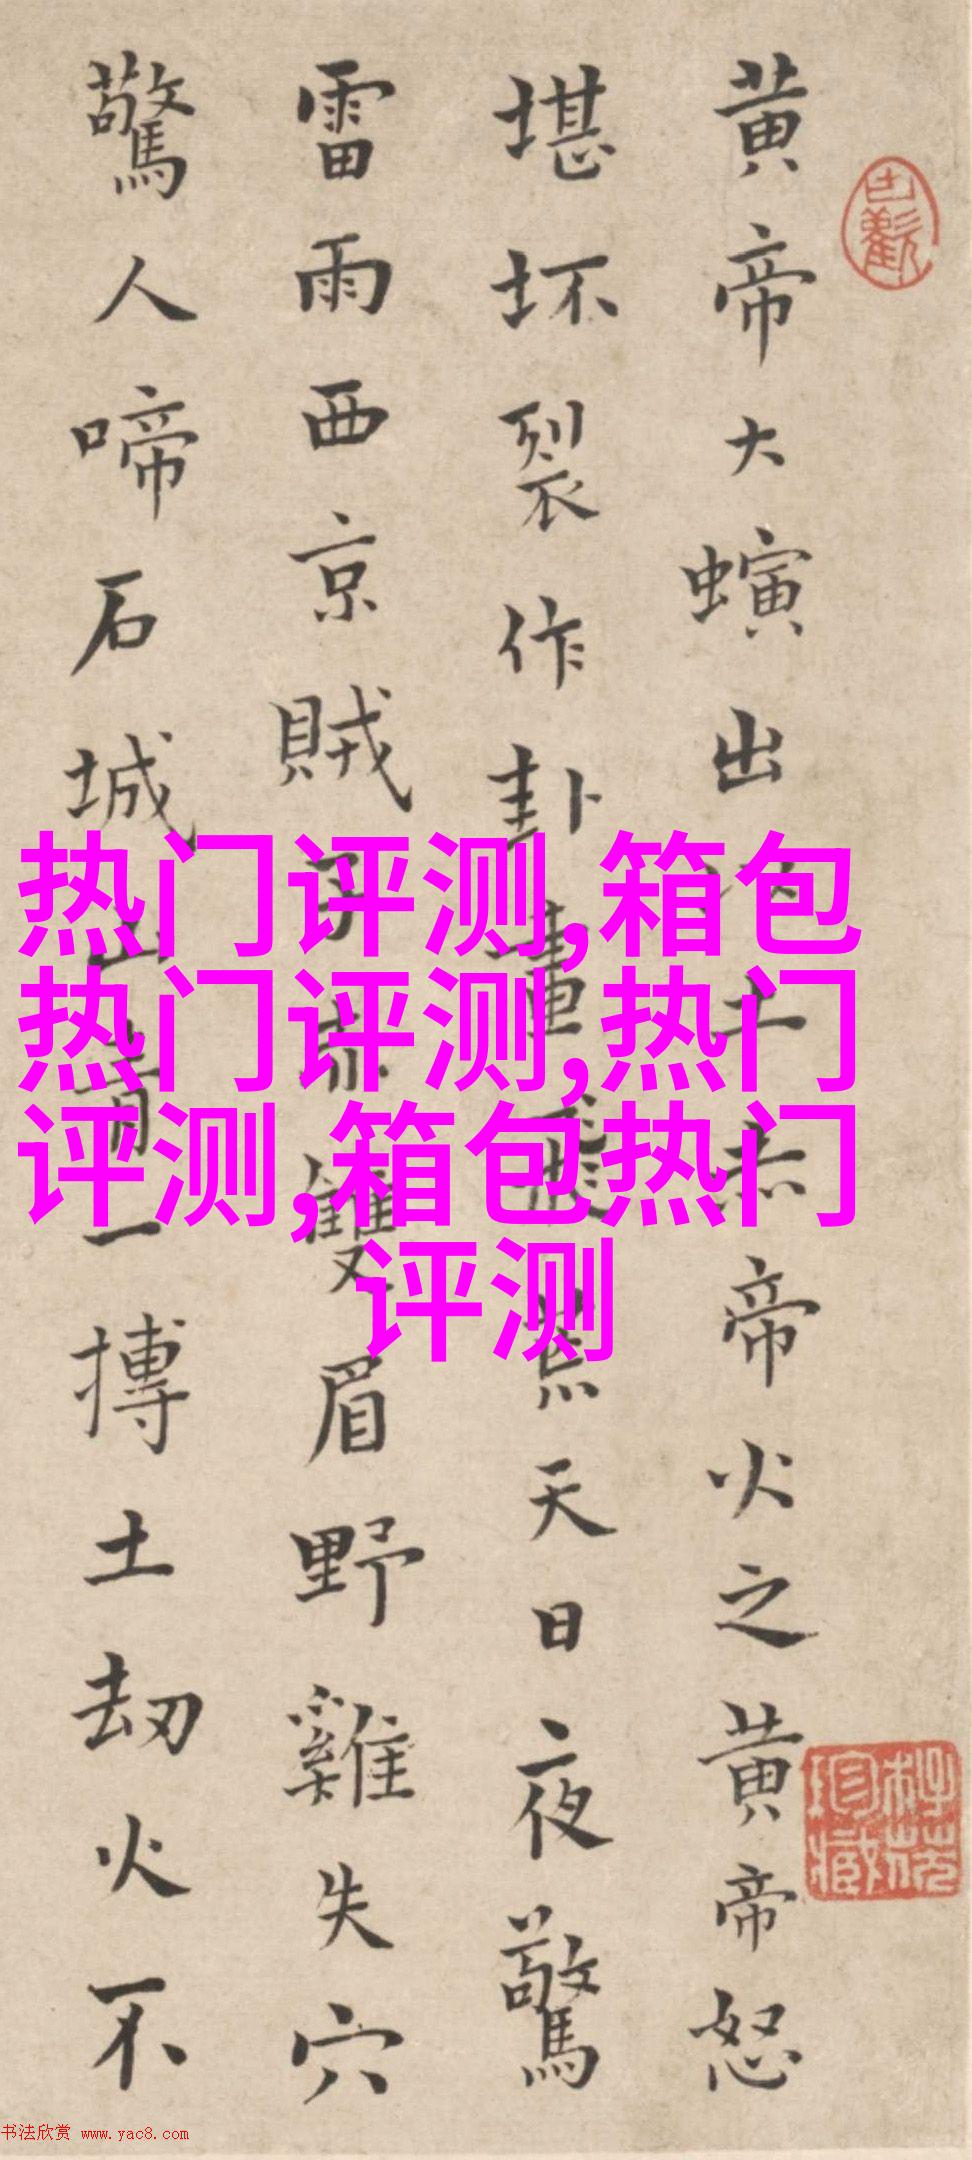 黄帝大螾出土赤帝火之黄帝怒
堪坏裂作卦畫天日夜驚
雷雨西京賊子赤雙眉野雞失穴
驚人啼石城山青一搏土刼火不
热门评测,箱包
热门评测,热门
评测,箱包热门
评测
书法欣赏 www.yac8.com